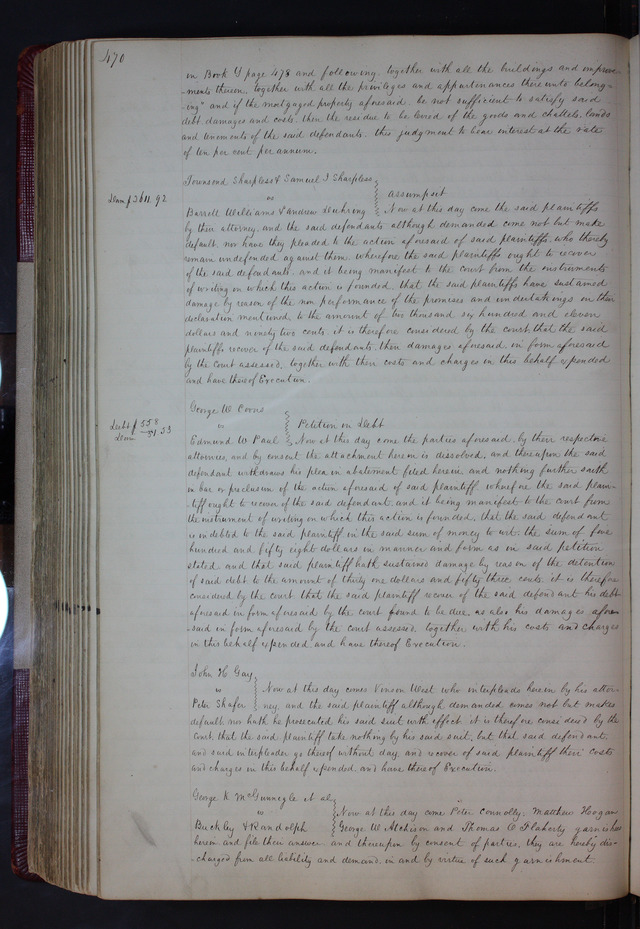 470
in Book Y page 478 and following, together with all the buildings and improve-
-ments thereon, together with all the privileges and appurtenances thereunto belong-
-ing" and if the mortgaged property aforesaid be not sufficient to satisfy said
debt, damages and costs, then the residue to be levied of the goods and chattels, lands
and tenements of the said defendants. this judgment to bear interest at the rate
of ten per cent per annum.
Townsend Sharpless & Samuel J Sharpless
vs
assumpsit
Dam $2611.92
Barrell Williams & Andrew Duhring Now at this day come the said plaintiffs
by their attorney, and the said defendants although demanded come not but make
default, nor have they pleaded to the action aforesaid of said plaintiffs, who thereby
remain undefended against them. wherefore the said plaintiffs ought to recover
of the said defendants. and it being manifest to the court from the instruments
of writing on which this action is founded, that the said plaintiffs have sustained
damage by reason of the non performance of the promises and undertakings in their
declaration mentioned, to the amount of two thousand six hundred and eleven
dollars and ninety two cents. it is therefore considered by the court that the said
plaintiffs recover of the said defendants, their damages aforesaid, in form aforesaid
by the Court assessed, together with their costs and charges in this behalf expended
and have thereof Execution.
George W Corns
vs
Petition in Debt
Debt $558
Dam 31 53
Edmund W Paul Now at this day come the parties aforesaid, by their respective
attornies, and by consent the attachment herein is dissolved, and thereupon the said
defendant withdraws his plea in abatement filed herein and nothing further saith
in bar or preclusion of the action aforesaid of said plaintiff. wherefore the said plain-
tiff ought to recover of the said defendant. and it being manifest to the court from
the instrument of writing on which this action is founded, that the said defendant
is indebted to the said plaintiff in the said sum of money to wit: the sum of five
hundred and fifty eight dollars in manner and form as in said petition
stated and that said plaintiff hath sustained damage by reason of the detention
of said debt to the amount of thirty one dollars and fifty three cents. it is therefore
considered by the court that the said plaintiff recover of the said defendant his debt
aforesaid in form aforesaid by the court found to be due, as also his damages afore
-said in form aforesaid by the court assessed, together with his costs and charges
in this behalf expended and have thereof Execution.
John H Gay
vs
Peter Shafer Now at this day comes Vinson West who interpleads herein by his attor-
ney, and the said plaintiff although demanded comes not but makes
default, nor hath he prosecuted his said suit with effect. it is therefore considered by the
Court, that the said plaintiff take nothing by his said suit, but that said defendant
and said interpleader go thereof without day and recover of said plaintiff their costs
and charges in this behalf expended and have thereof Execution.
George K McGunnegle et al
vs
Buckley & Randolph Now at this day come Peter Connolly, Matthew Hogan
George W Atchison and Thomas C Flaherty garnishees
herein and file their answer and thereupon by consent of parties, they are hereby dis-
-charged from all liability and demand, in and by virtue of such garnishment